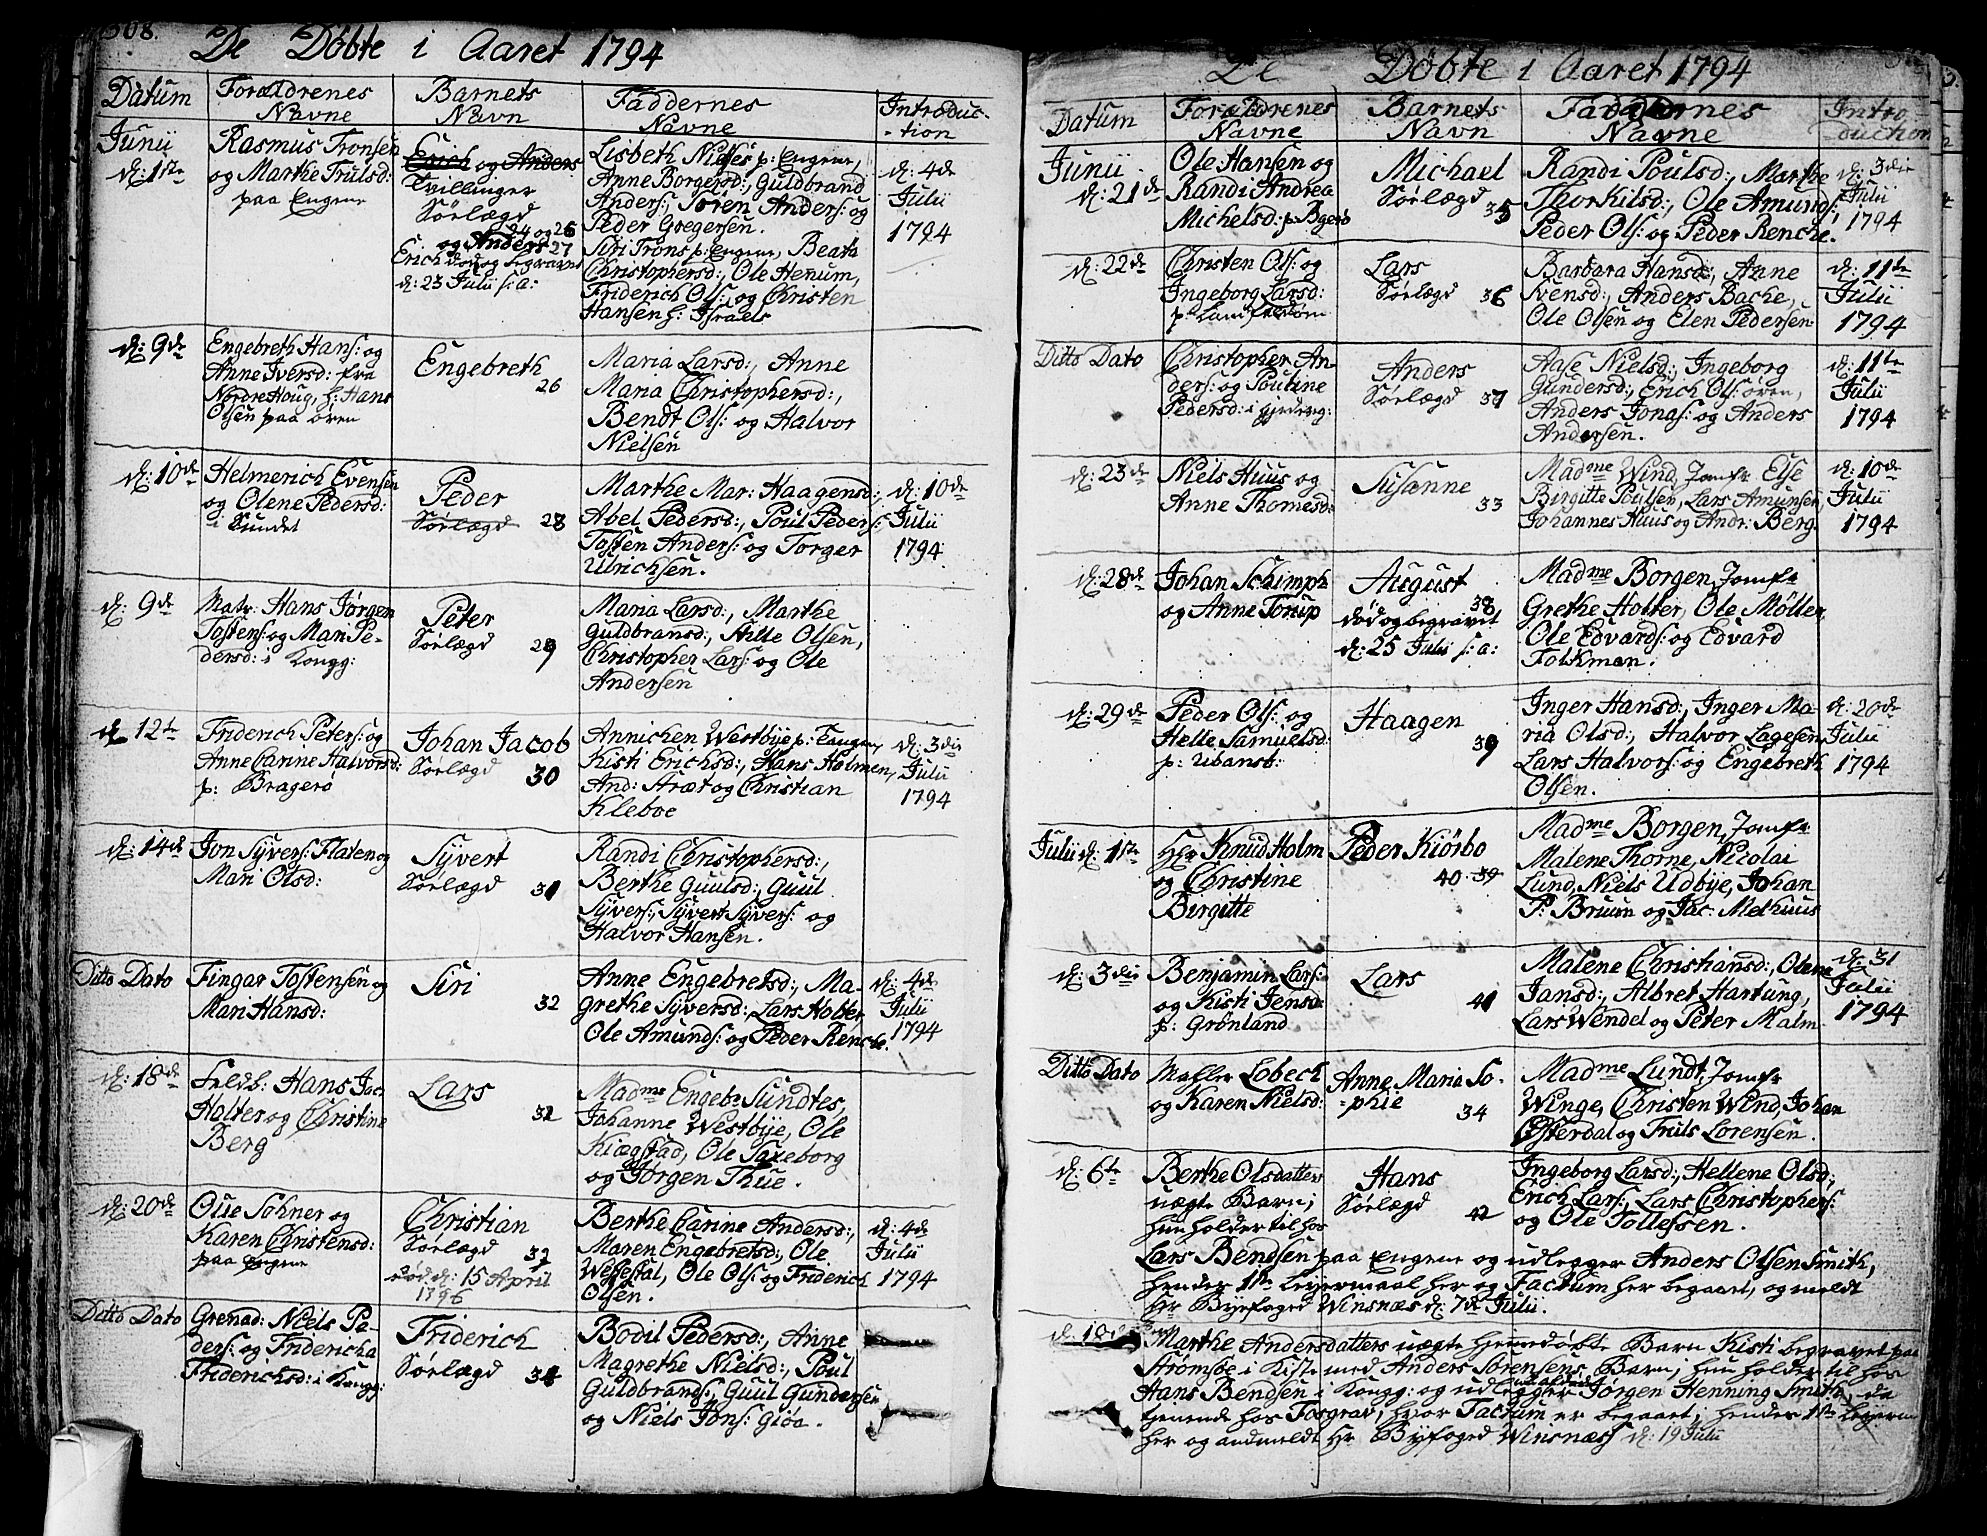 308.
De Döbte i Aaret 1794
Datum
Forældrenes
Navne
Barnets
Navn
Faddernes
Navne
Introduc-
-tion
Junii
d: 1ste
Rasmus Tronsen
og Marthe Trulsd:
paa Engene
Erich og Anders
Tvillinger
Sörlægd
24 og 26
og Anders 27
Erich död og begravet
d: 23 Julii s: a:
Lisbeth Nielses p: Engene,
Anne Borgersd:, Guldbrand
Anders:, Sören Anders: og
Peder Gregersen.
Siri Trons p: Engene, Beata
Christophersd:, Ole Henum,
Friderich Ols: og Christen
Hansen h: Israels
d: 4de
Julii
1794
d: 9de
Engebreth Hans: og
Anne Iversd: fra
Nordre Houg, h: Hans
Olsen paa ören
Engebreth
26
Maria Larsd:, Anne
Maria Christophersd:,
Bendt Ols: og Halvor
Nielsen
d: 10de
Helmerich Evensen
og Olene Pedersd:
i Sundet
Peder
Sörlægd 28
Marthe Mar: Haagensd:,
Abel Pedersd:, Poul Peders:
Tosten Anders: og Torger
Ulrichsen.
d: 10de
Julii
1794
d: 9de
Matr: Hans Jörgen
Tostens: og Mari Pe-
dersd: i Kongg:
Peter
Sörlægd 29
Maria Larsd:, Marthe
Guldbransd:, Hille Olsen,
Christopher Lars: og Ole
Andersen
d 12te
Friderich Peters: og
Anne Carine Halvorsd:
p: Bragerö
Johan Jacob
Sörlægd 30
Annichen Westbye p: Tangen,
Kisti Erichsd:, Hans Holmen,
And: Aræt og Christian
Kleboe
d: 3die
Julii
1794
d: 14de
Jon Syvers: Flaten og
Mari Olsd:
Syvert
Sörlægd 31
Randi Christophersd:,
Berthe Guulsd:, Guul
Syvers:, Syvert Syvers: og
Halvor Hansen.
Ditto Dato
Fingar Tostensen og
Mari Hansd:
Siri
32
Anne Engebretsd:, Ma-
grethe Syversd:, Lars Holter
Ole Amunds: og Peder Renche.
d: 4de
Julii
1794
d: 18de
Feldb: Hans Jac:
Holter og Christine
Berg
Lars
32
Madme Engebr Sundtes,
Johanne Westbye, Ole
Kiægstad, Ole Saxeborg
og Jörgen Thue.
d: 20de
Oue Sohner og
Karen Christensd:
paa Engene
Christian
Sörlægd 33
död d: 15 April
1796
Berthe Carine Andersd:,
Maren Engebretsd:, Ole
Wessestal, Ole Ols: og Friderich
Olsen.
d: 4de
Julii
1794
Ditto Dato
Grenad: Niels Pe-
ders: og Fridericha
Friderichsd: i Kongg:
Friderich
Sörlægd 34
Bodil Pedersd:, Anne
Magrethe Nielsd:, Poul
Guldbrands:, Guul Gundersen
og Niels Jons: Giöa.
De Döbte i Aaret 1794
Datum
Forældrenes
Navne
Barnets
Navn
Faddernes
Navne
Intro-
duction
Junii
d: 21de
Ole Hansen og
Randi Andrea
Michelsd: p: Bgerö
Michael
Sörlægd 35
Randi Poulsd:, Marthe
Thorkilsd:, Ole Amunds:,
Peder Ols: og Peder Renche.
d: 3die
Julii
1794
d: 22de
Christen Ols: og
Ingeborg Larsd:
Lars
Sörlægd 36
Barbara Hansd:, Anne
Svensd:, Anders Bache,
Ole Olsen og Elen Pedersen
d: 11te
Julii
1794
Ditto Dato
Christopher An-
ders: og Pouline
Pedersd: i Hjerterg:
Anders
Sörlægd 37
Aase Nielsd:, Ingeborg
Gundersd:, Erich Ols: ören,
Anders Jonas: og Anders
Andersen.
d: 11te
Julii
1794
d: 23de
Niels Huus og
Anne Thomesd:
Susanne
33
Madme Wind, Jomfr Else
Birgitte Poulsen, Lars Amunsen,
Johannes Huus og Andr: Berg
d: 10de
Julii
1794
d: 28de
Johan Schimph
og Anne Torup
August
38
död og begravet
d: 25 Julii s: a:
Madme Borgen, Jomfr
Grethe Holter, Ole Möller,
Ole Edvards: og Edvard
Folkman.
d: 29de
Peder Ols: og
Helle Samuelsd:
p: Ubansb:
Haagen
39
Inger Hansd:, Inger Ma-
ria Olsd:, Halvor Lagesen,
Lars Halvors: og Engebreth
Olsen.
d: 20de
Julii
1794
Julii d: 1ste
Hr Knud Holm
og Christine
Birgitte
Peder Kiörbo
40. 39
Madme Borgen, Jomfr
Malene Thorne, Nicolai
Lund, Niels Udbye, Johan
P: Bruun og Jac: Melhuus
d: 3die
Benjamin Lars:
og Kisti Jensd:
p: Grönland
Lars
41
Malene Christiansd:, Olene
Jansd:, Albret Hartung,
Lars Wendel og Peter Malm
d: 31
Julii
1794
Ditto Dato
Mahler Lobech
og Karen Nielsd:
Anne Maria So-
-phie
34
Madme Lundt, Jomfr
Winge, Christen Wind, Johan
Österdal og Truls Lorensen.
d: 6te
Berthe Olsdatters
uægte Barn;
hun holder til hos
Hans
Sörlægd 42
Ingeborg Larsd:, Hellene Olsd:,
Erich Lars:, Lars Christophers:
og Ole Tollessen.
Lars Bendsen paa Engene og udlegger Anders Olsen Smith,
hendes 1ste Leyermaal her og Factum her begaaet, og meldt
Hr Byefoged Winsnæs d: 7de Julii.
d: 18de
Marthe Andersdatters uægte hiemmedöbte Barn Kisti begravet paa
Strömsöe i Kiste med Anders Sörensens Barn; hun holder til hos
Hans Bendsen i Kongg: og udlegger Jörgen Henning Smith, da
tjenende hos Fosgrav, hvor Factum er begaaet; hendes 1ste Leyerm:
her og anmeldt Hr Byfoged Winsnæs d: 19 Julii